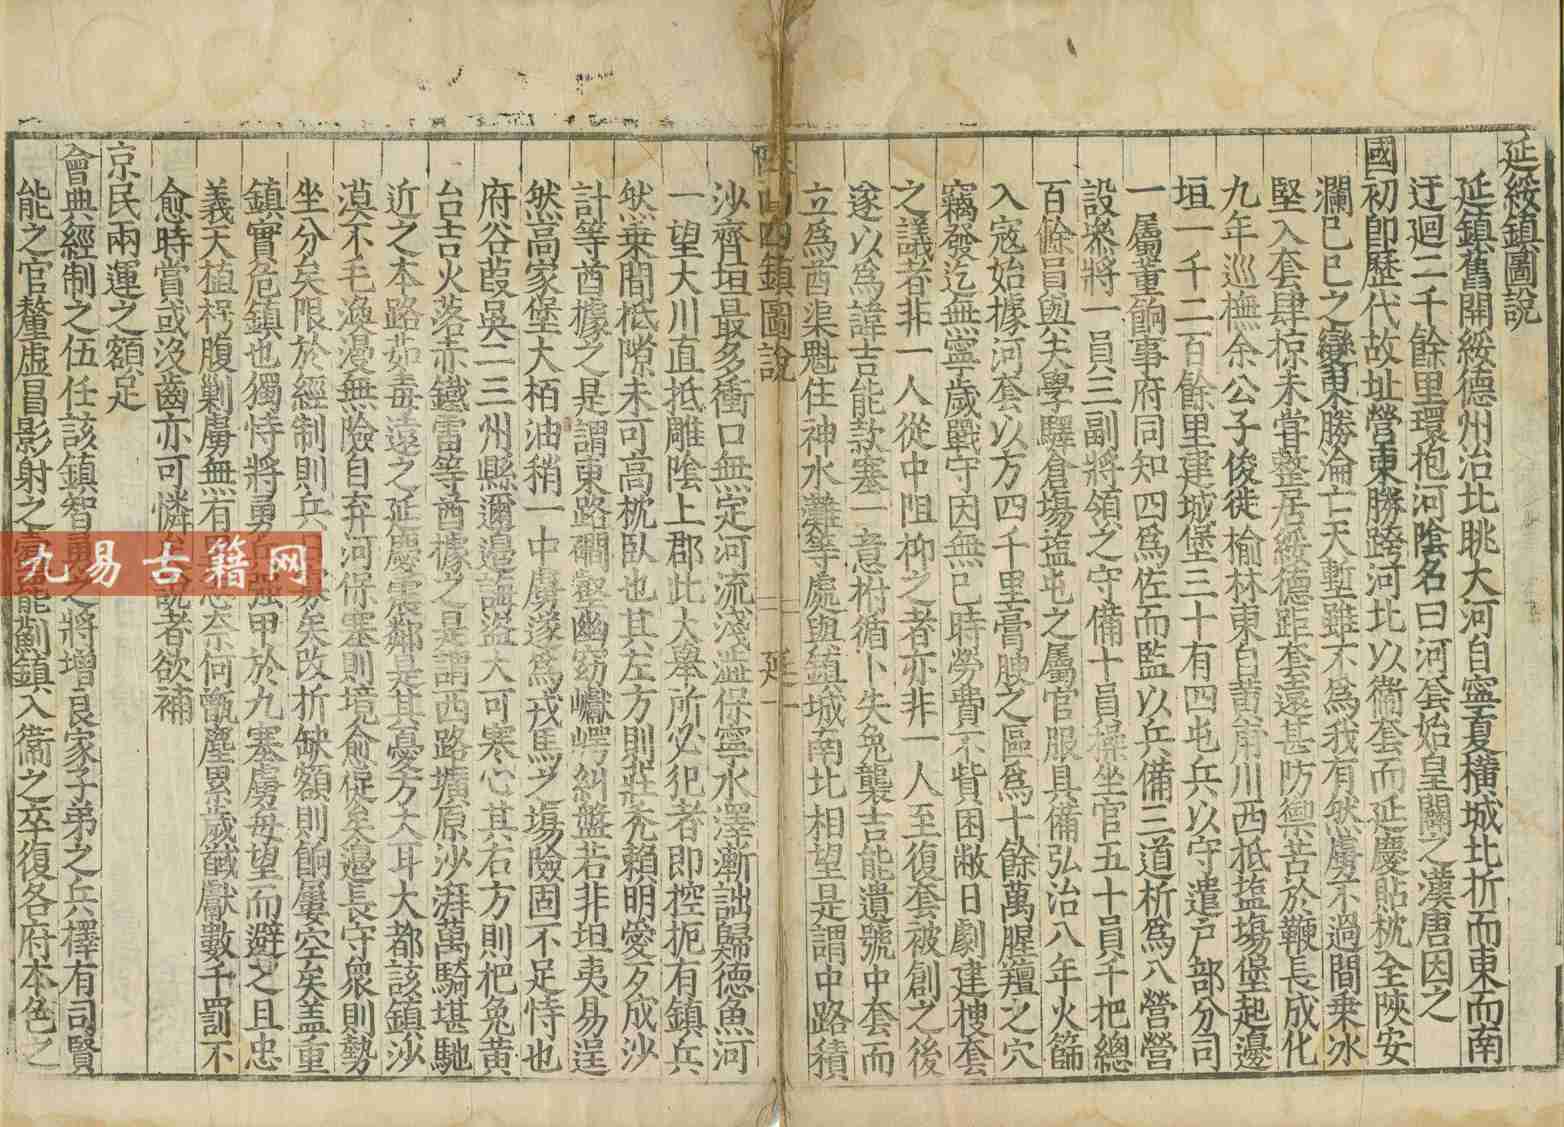 延綏鎮圖說
延鎮舊開綏德州治北眺大河自寧夏橫城北折而東而南
迂迴二千餘里環抱河陰名曰河套始皇闢之漢唐因之
國初即歷代故址營東勝跨河北以衞套而延慶貼枕全陝安
瀾已巳之變東勝淪亡天塹雖不為我有然虜不過間乗氷
堅入套肆掠未甞整居綏德距套遠甚防禦苦於鞭長成化
九年巡撫余公子俊徙榆林東自黃甫川西抵塩場堡起邊
垣一千二百餘里建城堡三十有四屯兵以守遣戶部分司
一屬董餉事府同知四為佐而監以兵備三道析為八營營
設叅將一員三副將領之守備十員操坐官五十員千把總
百餘員與夫學驛倉場塩屯之屬官服具備弘治八年火篩
入寇始據河套以方四千里膏腴之區為十餘萬腥羶之穴
竊發迄無寧歲戰守因無已時勞費不貲困敝日劇建搜套
之議者非一人從中阻抑之者亦非一人至復套被創之後
遂以為諱吉能款塞一意柎循卜失兔襲吉能遺號中套而
立為酋渠魁住神水灘等處與鎮城南北相望是謂中路積
陝西四鎮圖說
延一
沙齊垣最多衝口無定河流淺澁保寧水澤漸詘歸德魚河
一望大川直抵雕陰上郡此大舉所必犯者即控扼有鎮兵
然乗間柢隙未可高枕臥也其左方則莊禿賴明愛歹成沙
計等酋據之是謂東路磵壑幽窈巘崿糾盤若非坦夷易逞
然高家堡大栢油稍一中虜遂為戎馬之場險固不足恃也
府谷葭吳二三州縣邇邊誨盜大可寒心其右方則把兔黃
台吉火落赤鐵雷等酋據之是謂西路壙原沙湃萬騎堪馳
近之本路茹毒遠之延慶震鄰是其憂方大耳大都該鎮沙
漠不毛漁漫無險自弃河保塞則境愈促矣邊長守衆則勢
坐分矣限於經制則兵矣改折缺額則餉屢空矣蓋重
鎮實危鎮也獨恃將勇兵强甲於九塞虜每望而避之且忠
義天植枵腹剿虜無有奈何甑塵累歲馘獻數千罰不
愈時賞或沒齒亦可憐說者欲補
京民兩運之額足
會典經制之伍任該鎮智勇之將增良家子弟之兵擇有司賢
能之官釐虛冒影射之能薊鎮入衞之卒復各府本色之
九易古籍网